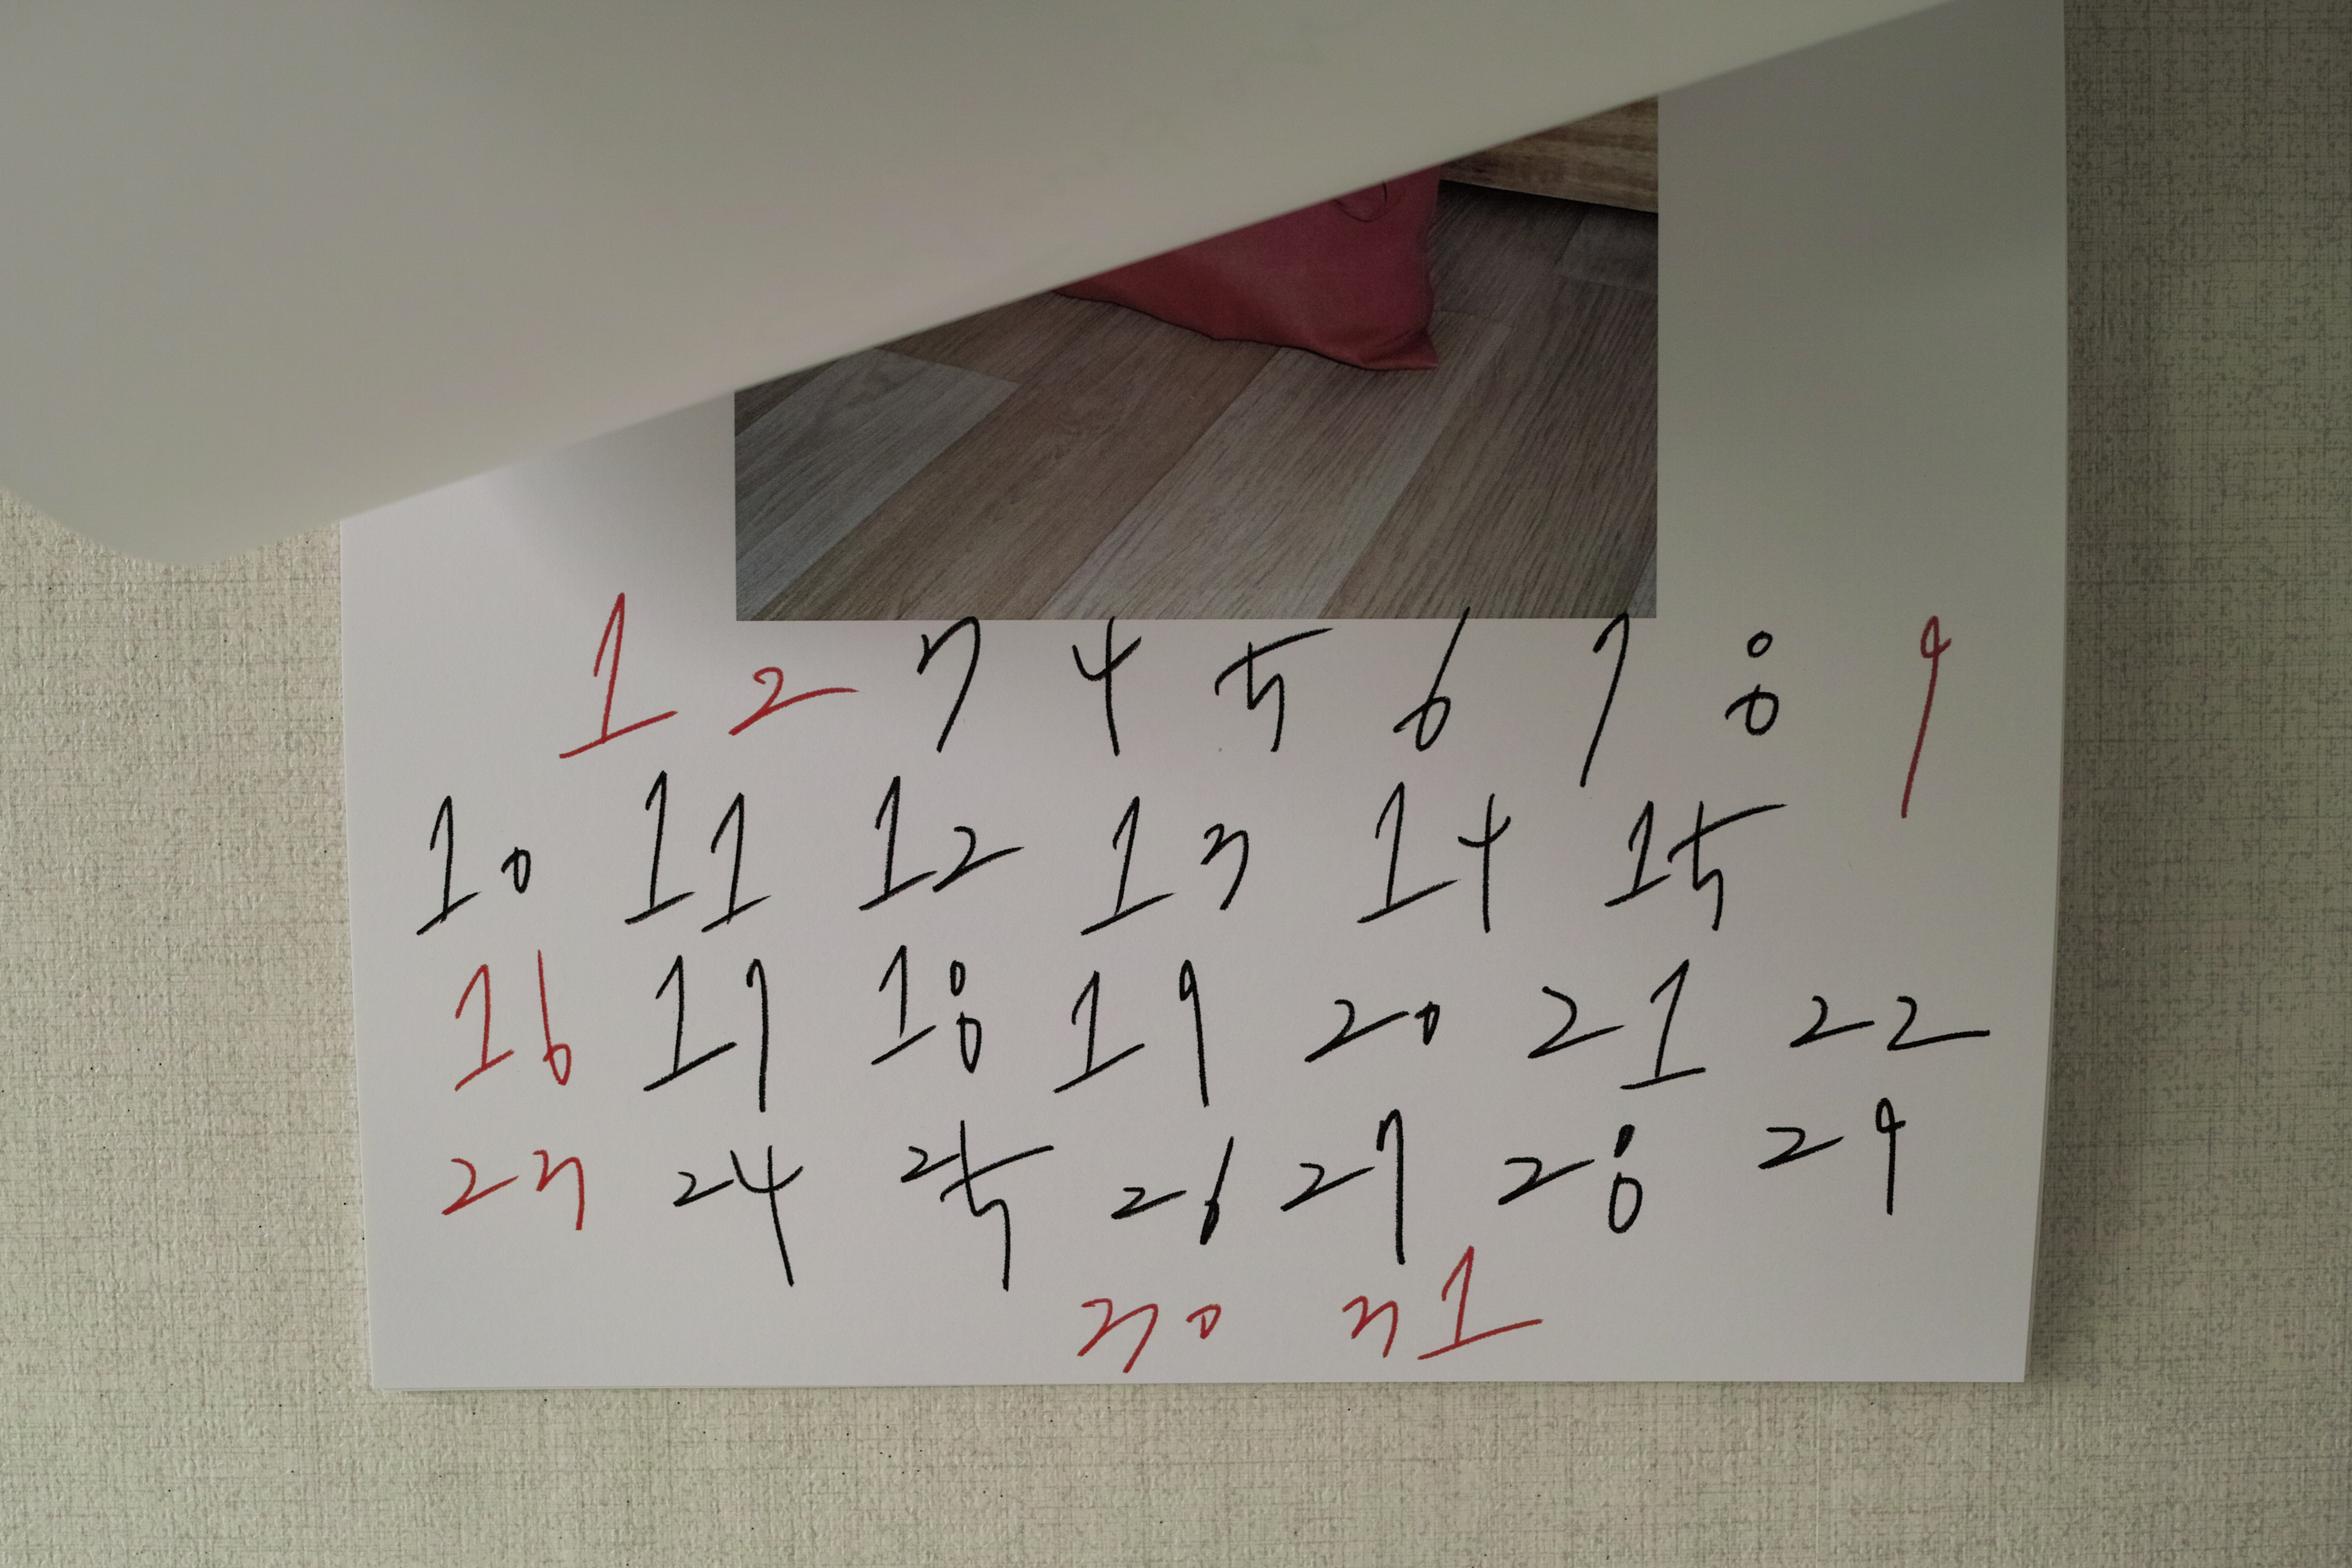 1 2 3 4 5 6 7 8 9
10 11 12 13 14 15
16 17 18 19 20 21 22
23 24 25 26 27 28 29
30 31